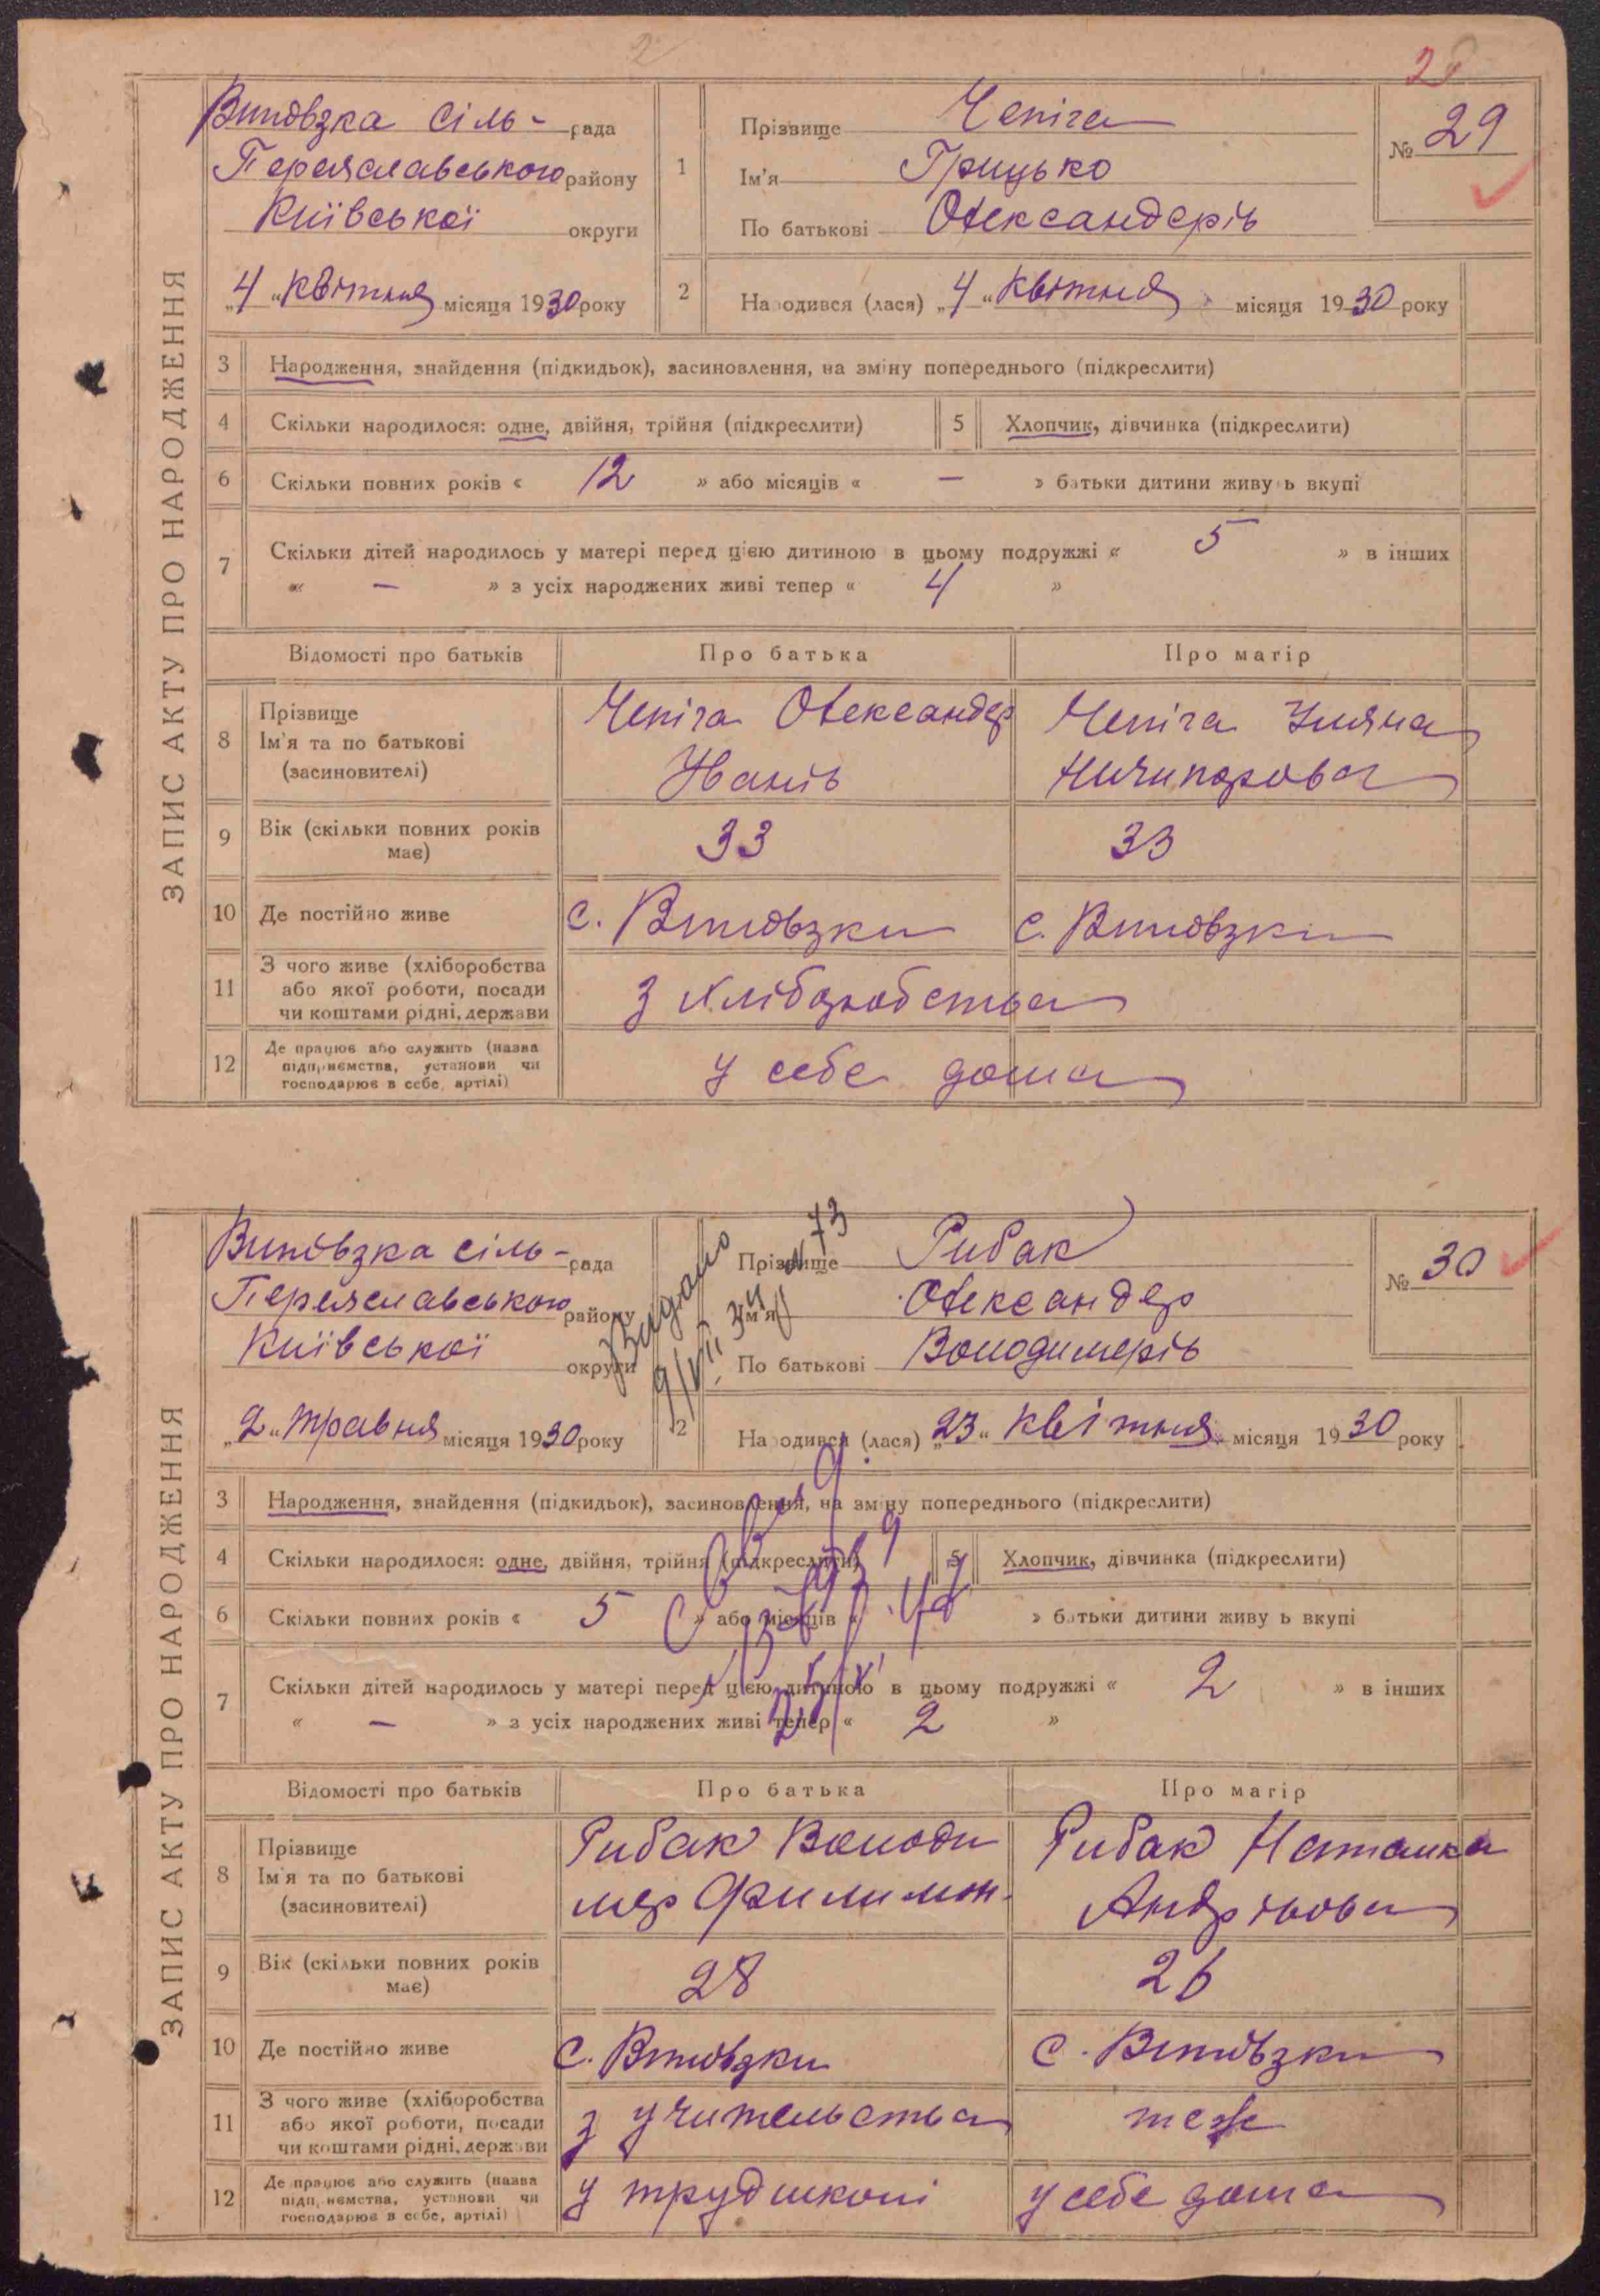 2
ЗАПИС АКТУ ПРО НАРОДЖЕННЯ
Виповзка сіль-рада
Переяславського району
Київської округи
„4“ квітня місяця 1930 року
1
Прізвище Чепіга
Ім'я Грицько
По батькові Олександерів
№ 29
2
Народився (лася) „4“ квітня місяця 1930 року
3 Народження, знайдення (підкидьок), засиновлення, на зміну попереднього (підкреслити)
4 Скільки народилося: одне, двійня, трійня (підкреслити) 5 Хлопчик, дівчинка (підкреслити)
6 Скільки повних років « 12 » або місяців « — » батьки дитини живуть вкупі
7 Скільки дітей народилось у матері перед цією дитиною в цьому подружжі « 5 » в інших
« — » з усіх народжених живі тепер « 4 »
Відомості про батьків Про батька Про матір
8 Прізвище
Ім'я та по батькові
(засиновителі)
Чепіга Олександер
Іванів
Чепіга Уляна
Ничипорова
9 Вік (скільки повних років
має)
33 33
10 Де постійно живе с. Виповзки с. Виповзки
11 З чого живе (хліборобства
або якої роботи, посади
чи коштами рідні, держави
з хліборобства
12 Де працює або служить (назва
підприємства, установи чи
господарює в себе, артілі)
у себе дома
ЗАПИС АКТУ ПРО НАРОДЖЕННЯ
Виповзка сіль-рада
Переяславського району
Київської округи
„2“ травня місяця 1930 року
Видано
73
Прізвище Рибак
Ім'я Олександер
По батькові Володимерів
№ 30
2
Народився (лася) „23“ квітня місяця 1930 року
3 Народження, знайдення (підкидьок), засиновлення, на зміну попереднього (підкреслити)
4 Скільки народилося: одне, двійня, трійня (підкреслити) 5 Хлопчик, дівчинка (підкреслити)
6 Скільки повних років « 5 » або місяців « » батьки дитини живуть вкупі
7 Скільки дітей народилось у матері перед цією дитиною в цьому подружжі « 2 » в інших
« — » з усіх народжених живі тепер « 2 »
Відомості про батьків Про батька Про матір
8 Прізвище
Ім'я та по батькові
(засиновителі)
Рибак Володи
мер Филимон.
Рибак Наталка
Андріьова
9 Вік (скільки повних років
має)
28 26
10 Де постійно живе с. Виповзки с. Виповзки
11 З чого живе (хліборобства
або якої роботи, посади
чи коштами рідні, держави
з учительства теж
12 Де працює або служить (назва
підприємства, установи чи
господарює в себе, артілі)
у трудшколі у себе дома